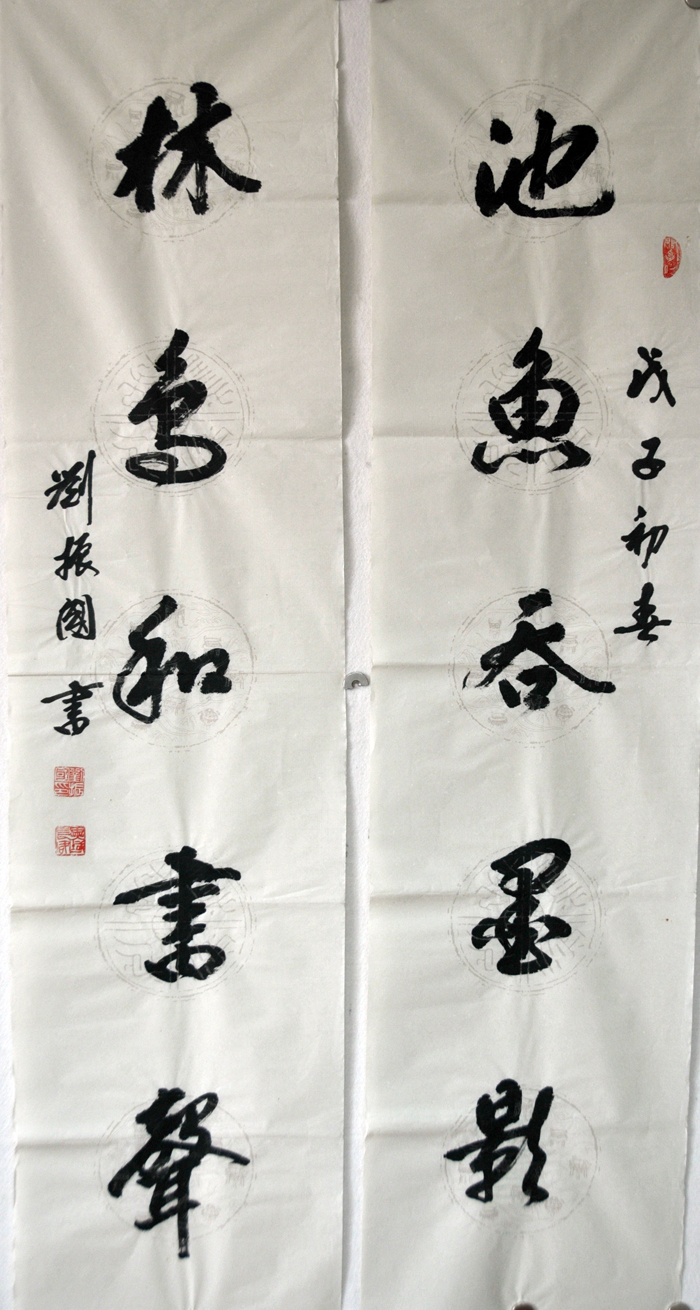 池魚吞墨影
戊子初春
林鳥和書聲
劉振國書